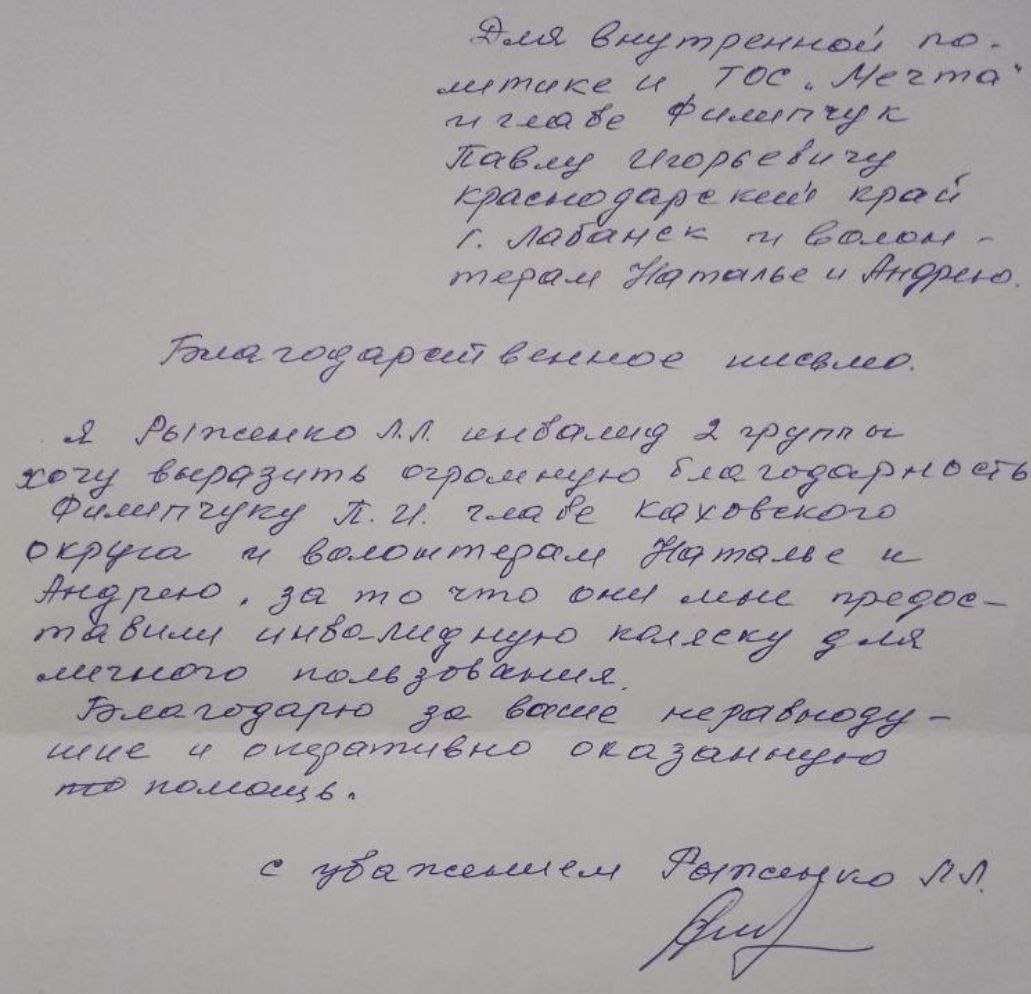 Для внутренной по-
литике и ТОС "Мечта"
и главе Филипчук
Павлу Игорьевичу
краснодарский край
г. Лабанск и волон-
терам Наталье и Андрею.
Благодарственное письмо.
Я Рыженко Л.Л. инвалид 2 группы
хочу выразить огромную благодарность
Филипчуку П.И. главе Каховского
округа и волонтерам Наталье и
Андрею, за то что они мне предос-
тавили инвалидную коляску для
личного пользования.
Благодарю за ваше неравноду-
шие и оперативно оказанную
помощь.
с уважением Рыженко Л.Л.